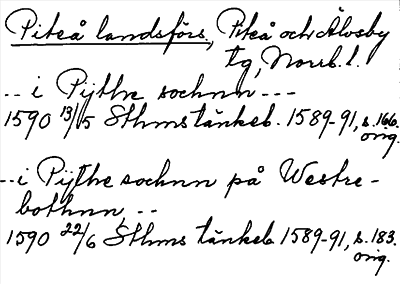 Piteå landsförs., Piteå och Älvsby
tg, Norrb. l.
-- i Pijthe sochnn ---
1590 13/5 Sthms tänkeb. 1589-91, s. 166.
orig.
-- i Pijthe sochnn på Westre-
bothnn, --
1590 22/6 Sthms tänkeb 1589-91, s. 183.
orig.